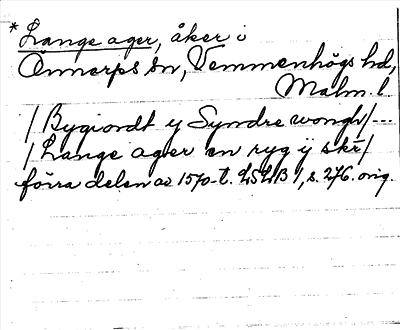 * Lange ager, åker i
Önnerps sn, Vemmenhögs hd,
Malm. l.
/Bygiordt y Syndre wongh/---
/Lange ager en ryg ÿ skr/
förra delen av 1570-t. LSLB 1, s. 276. orig.